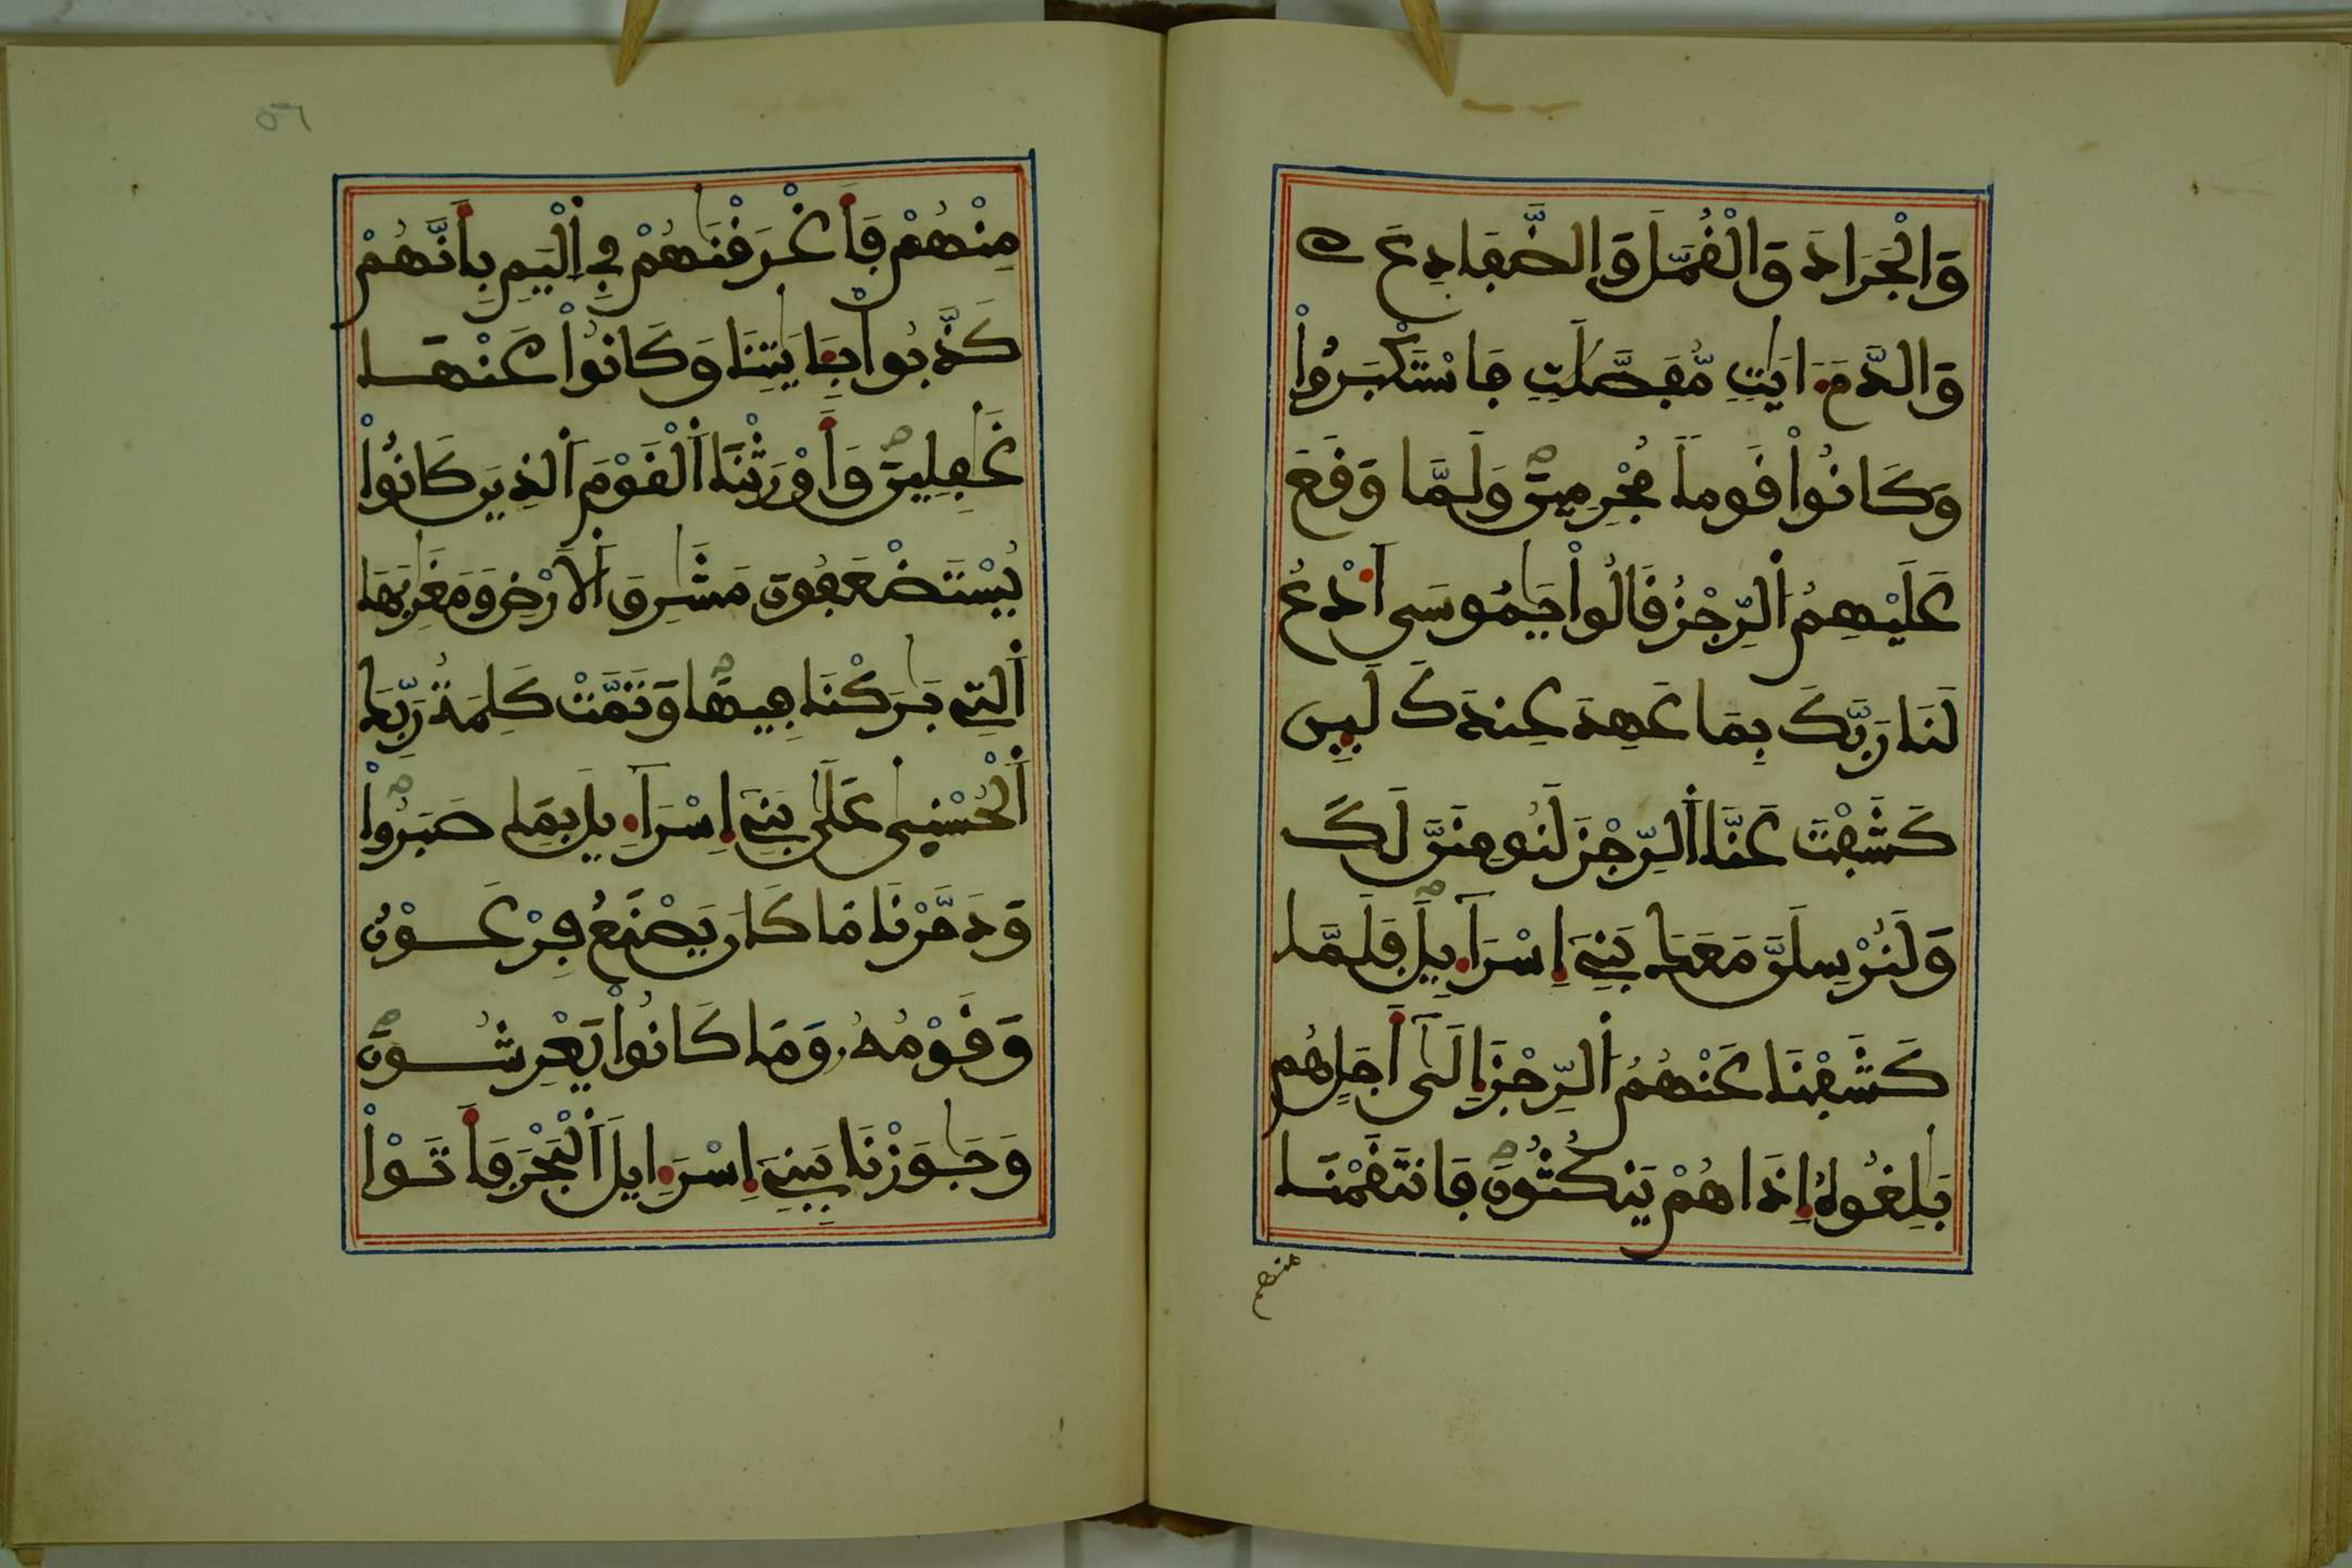 وَالْجَرَادَ وَالْقُمَّلَ وَالضَّفَادِعَ
وَالدَّمَ ءَايَٰتٖ مُّفَصَّلَٰتٖ فَاسْتَكْبَرُواْ
وَكَانُواْ قَوماٗ مُّجْرِمِينَۖ وَلَمَّا وَقَعَ
عَلَيْهِمُ اُلرِّجْزُ قَالُواْ يَٰمُوسَى اَدْعُ
لَنَا رَبَّكَ بِمَا عَهِدَ عِندَكَ لَئِن
كَشَفْتَ عَنَّا اَلرِّجْزَ لَنُومِنَنَّ لَكَ
وَلَنُرْسِلَنَّ مَعَكَ بَنِےٓ إِسْرَآءِيلَۖ فَلَمَّا
كَشَفْنَا عَنْهُمُ اُلرِّجْزَ إِلَىٰٓ أَجَلٍ هُم
بَٰلِغُوهُ إِذَا هُمْ يَنكُثُونَۖ فَانتَقَمْنَا
منهم
٥٦
مِنْهُمْ فَأَغْرَقْنَٰهُمْ فِے اِلْيَمِّ بِأَنَّهُمْ
كَذَّبُواْ بِـَٔايَٰتِنَا وَكَانُواْ عَنْهَا
غَٰفِلِينَۖ وَأَوْرَثْنَا اَلْقَوْمَ اَلذِينَ كَانُواْ
يُسْتَضْعَفُونَ مَشَٰرِقَ اَلَارْضِ وَمَغَٰرِبَهَا
اَلتِے بَٰرَكْنَا فِيهَاۖ وَتَمَّتْ كَلِمَةُ رَبِّكَ
اَلْحُسْنَىٰ عَلَىٰ بَنِےٓ إِسْرَآءِيلَ بِمَا صَبَرُواْۖ
وَدَمَّرْنَا مَا كَانَ يَصْنَعُ فِرْعَوْنُ
وَقَوْمُهُۥ وَمَا كَانُواْ يَعْرِشُونَۖ
وَجَٰوَزْنَا بِبَنِےٓ إِسْرَآءِيلَ اَلْبَحْرَ فَأَتَوْاْ